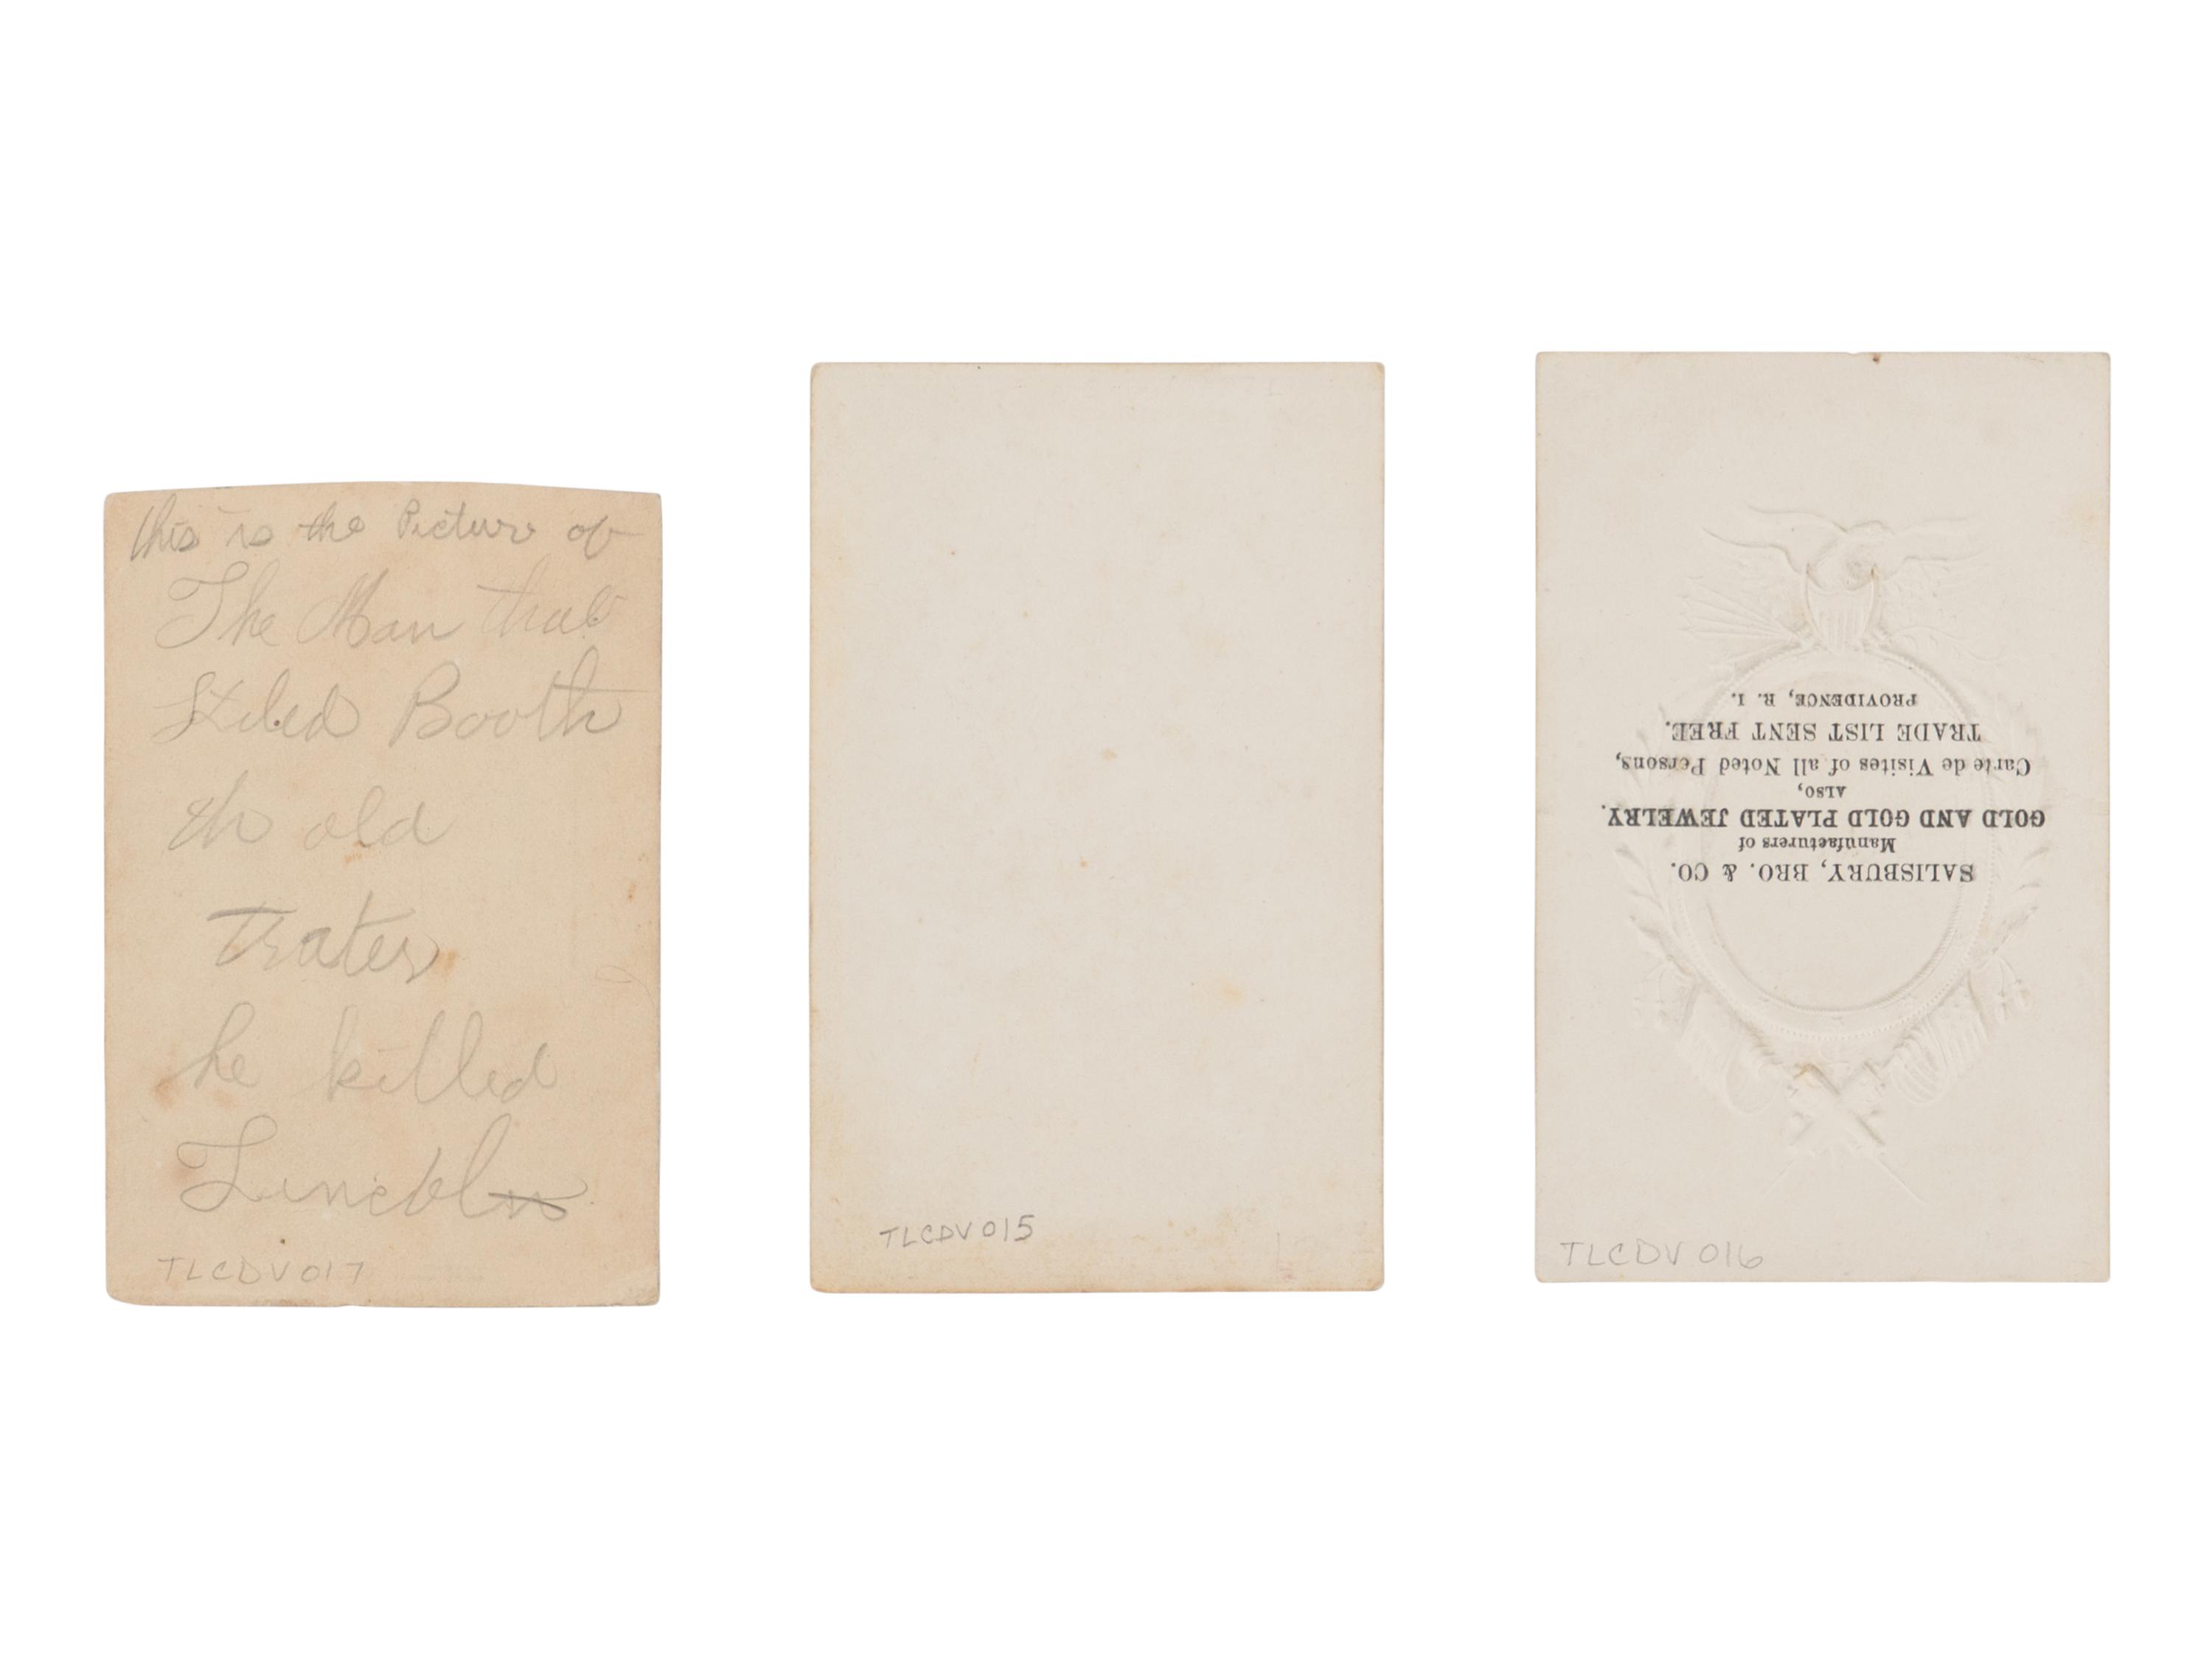 this is the Picture of
The Man that
Kiled Booth
th old
Trater
he killed
Lincoln
TLCDV017
TLCDV015
SALISBURY, BRO. & CO.
Manufacturers of
GOLD AND GOLD PLATED JEWELRY.
ALSO,
Carte de Visites of all Noted Persons,
TRADE LIST SENT FREE.
PROVIDENCE, R. I.
TLCDV 016